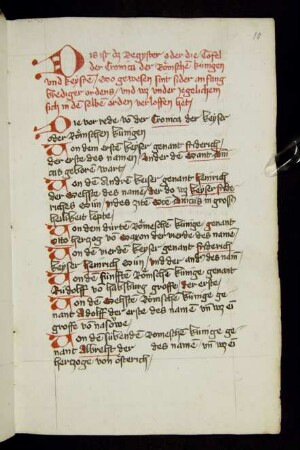 18
Dis ist dz Register oder die Tafel
der Cronica der Römschē künigen
vnd keysern / die gewesen sint sider anfang
prediger ordens / vnd wz vnder yegelichem
sich in dē selbē orden verloffen het /
Die vor rede vō der Cronica der keyser
oder Römschen künigen
Von dem ersten keyser genant friderich
der erste des namen / ander dē
geborē wart /
Von dē Andrē keiser genant heinrich
der Sechste des namē / der do wz keyser fride
riches sun / in gros
heilikeit lebte /
Von dem dirtē Römeschē künige genant
Otto hertzog vō Saxon der vierde des namē /
Von dē vierdē keyser genant friderich
keyser heinrich sun / vnd der ander des nam
Von dē fünfftē Römschē künige genant
Rudolff vō habspurg groffe der erste /
Von dē Sechstē Römschē künige ge
nant Adolff der erste des namē / vn wz ei
groffe vō nasowe /
Von dē sübendē Römeschē künige ge
nant Albreht der des namē / vn wz ei
hertzoge von österich /